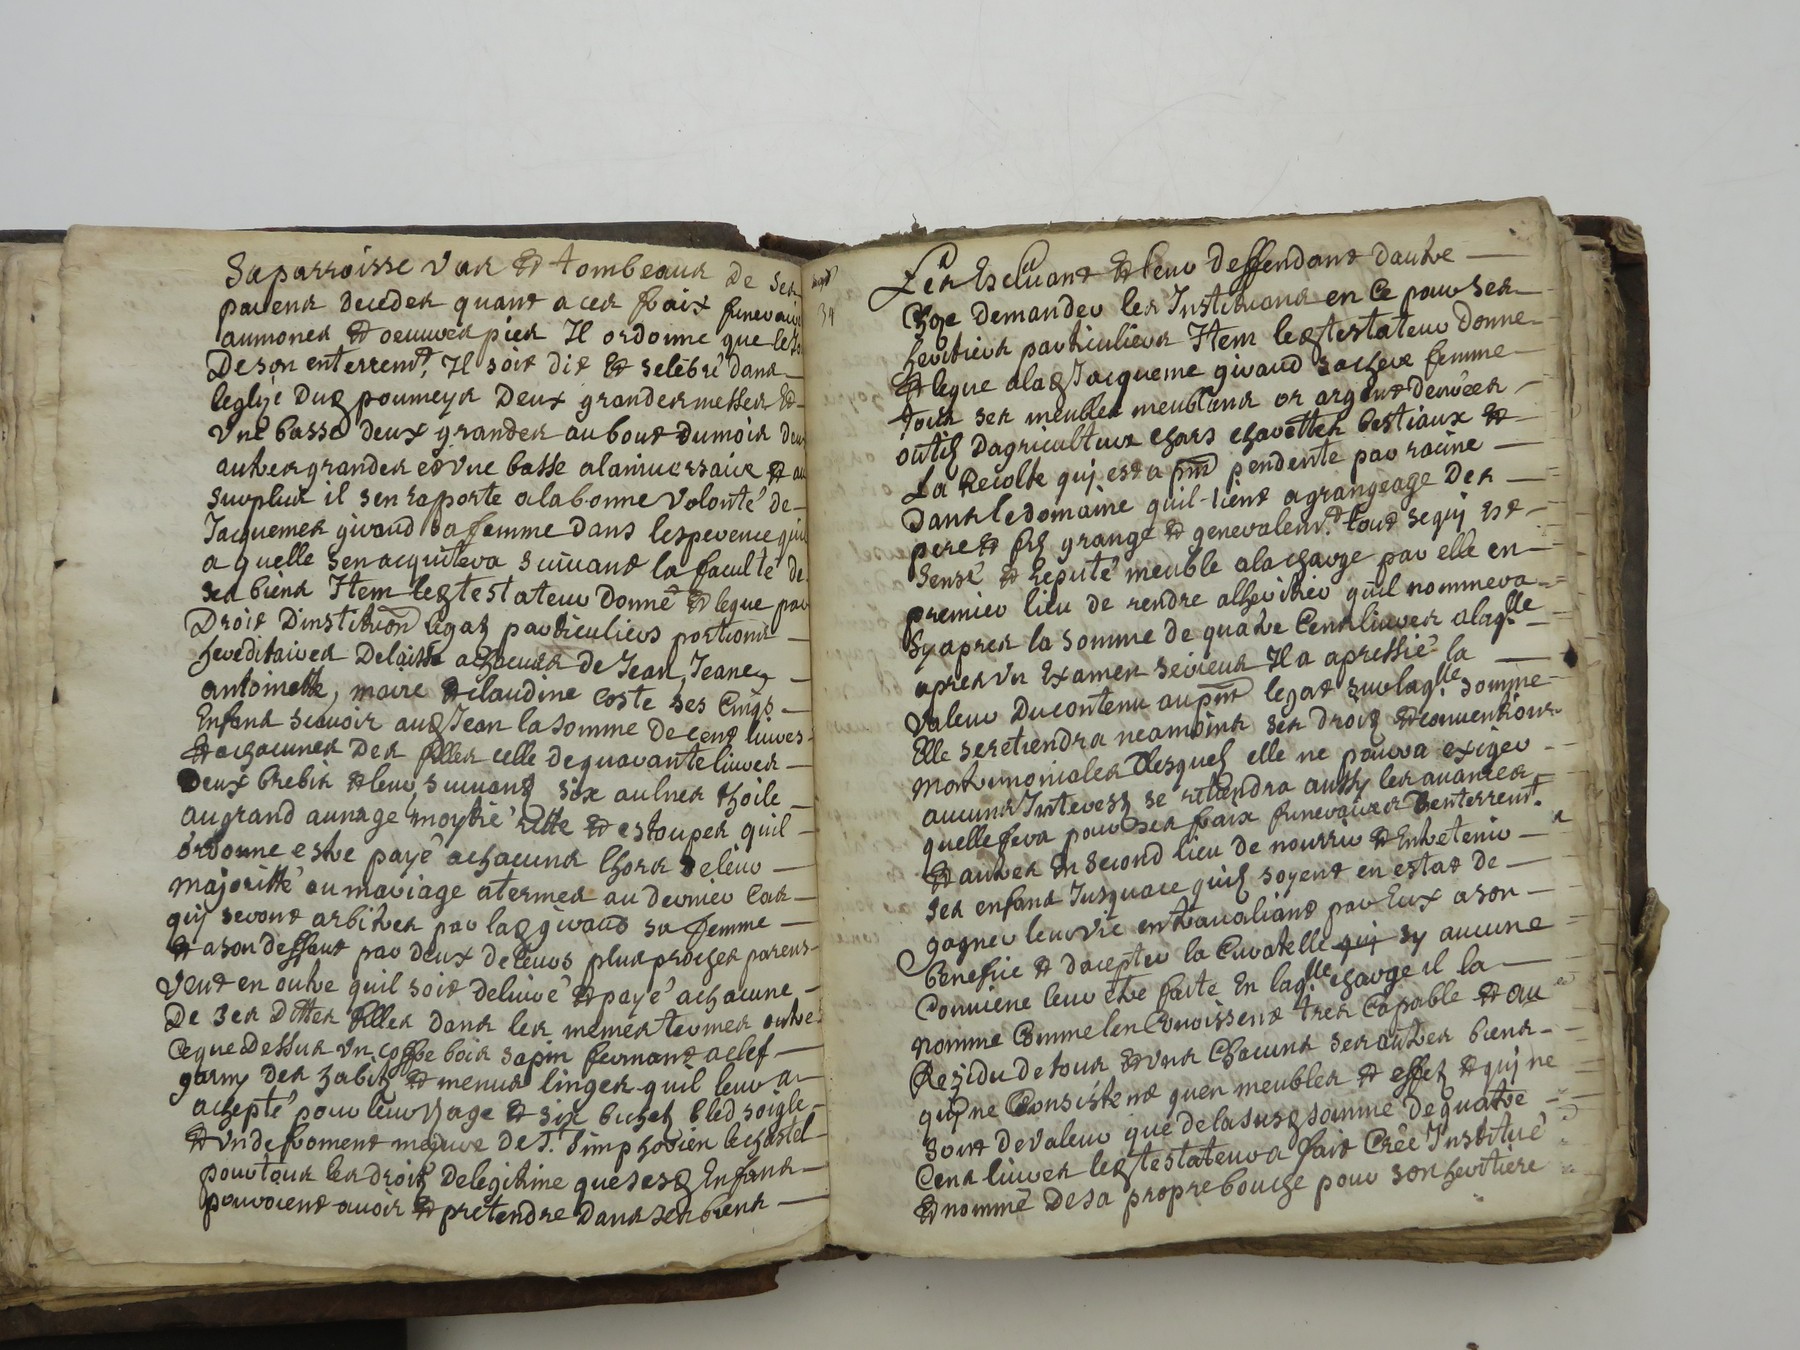 Saparroisse vas et tombeaux de ses
parens decedes quant a ces frais funeraires
aumones et oeuvres pies Il ordonne que le
De son enterremt, Il soit dit et selebré dans
leglize dud poumeys Deux grandes messes et
Vne basse deux grandes au bout dumois deux
autres grandes et vne basse alaniuersaire et au
surplus il sen raporte alabonne volonté de
Jacquemes giraud sa femme dans lesperence
a quelle sen acquitera suiuant la faculté de
ses biens Item led testateur donne et legue par
Droit Dinstitution legatz particuliers portions
hereditaires Delaisse achacuns de Jean, Jeane,
antoinette, marie et claudine coste ses Cinqs
Enfans scauoir aud Jean la somme de cent liures
et achacunes Des filles celle dequarante liures
Deux brebis et leur suiuans six aulnes thoile
augrand aunage moytié ritte et estoupes quil
ordonne estre payé achacuns lhors de leur
majoritté ou mariage atermes au dernier Cas
quy seront arbitres par lad giraud sa femme
et ason deffaut par deux deleurs plus proches parens
Veut en outre quil soit deliuré et payé achacune
De ses Dittes filles dans les memes termes outre
Ceque Dessus vn coffre bois sapin fermant aclef
garny des habitz et menus linges quil leur a
achepté pour leur vzage et six bichetz bled soigle
et vn de froment mezure de St. Simphorien lechastel
pour tous les droitz Delegitime que sesd Enfans
pouroient auoir et pretendre dans ses biens
34
Les Excluant et leur deffendant dautre
Choze demander les Instituans en Ce pour ses
heritiers particuliers Item led testateur donne
et legue alad Jacqueme giraud sa chere femme
tous ses meubles meublans or argent denrées
outilz dagriculture chars charettes bestiaux et
La Recolte quj est a pnt pendente par racine
Dans ledomaine quil tient agrangeage Des
pere et filz grange et generalemt. tout sequj est
sensé et Reputé meuble alacharge par elle en
premier lieu de rendre alheritier quil nommera
Sy apres la somme de quatre Cens liures alaqlle
apres vn Examen serieux Il a apressié la
Valeur Ducontenu aupnt legat sur laqlle somme
Elle seretiendra neamoins ses droitz et conuentions
matrimoniales Desquelz elle ne poura exiger
aucuns Interestz se retiendra aussy les auances
quelle fera pour ses fraix funeraires Denterremt.
et autres En second lieu de nourrir et Entretenir
ses enfans Jusquace quilz soyent en estat de
gagner leur vie en trauaillant par Eux a son
benefice et dacepter la Curatelle sy aucune
Conuiene leur etre faite En laqlle charge il la
nomme Comme len Conoissent tres Capable et au
Rezidu de tous et vns Chacuns ses autres biens
quj ne Consistent quen meubles et effetz et quj ne
sont de valeur que de lasusd somme de quatre
Cens liures led testateur a fait Crée Institué
et nommé De sa propre bouche pour son heritiere